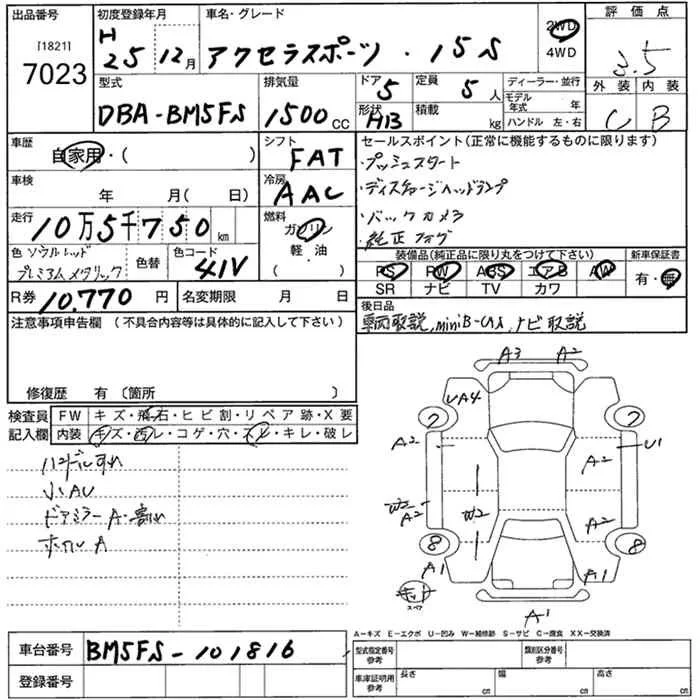 出品番号
[1821]
7023
初度登録年月
H
25 12月
車名・グレード
アクセラスポーツ ・ 15S
2WD
4WD
評価点
3.5
外装 内装
C B
型式
DBA-BM5FS
排気量
1500 CC
ドア
5
定員
5 人
形状
HB
積載
kg
ディーラー・並行
モデル年式 年
ハンドル 左・右
車歴
自家用・( )
シフト
FAT
車検
年 月( 日)
冷房
AAC
走行
10万5千750 km
燃料
ガソリン
軽油
( )
色 ソウルレッド
プレミアムメタリック
色替
色コード
41V
R券 10,770 円
名変期限 月 日
セールスポイント(正常に機能するものに限ります)
・プッシュスタート
・ディスチャージヘッドランプ
・バックカメラ
・純正フォグ
装備品(純正品に限り丸をつけて下さい)
新車保証書
PS PW ABS エアB AW
SR ナビ TV カワ
有・無
後日品
車両取説, miniB-CAS, ナビ取説
注意事項申告欄 (不具合内容等は具体的に記入して下さい)
修復歴 有 (箇所 )
検査員
記入欄
FW キズ・飛石・ヒビ割・リペア跡・X要
内装 キズ・汚レ・コゲ・穴・スレ・キレ・破レ
ハンドルすれ
小AU
ドアミラーA・割れ
ホイルA
A3 A2
UA4
7 7
A2 A2 U1
W2
A2
W2 A2
8 8
A1 A1
スペア
A1
A-キズ E-エクボ U-凹み W-補修跡 S-サビ C-腐食 XX-交換済
車台番号 BM5FS-101816
登録番号
型式指定番号
参考
類別区分番号
参考
車庫証明用
参考
長さ cm
幅 cm
高さ cm